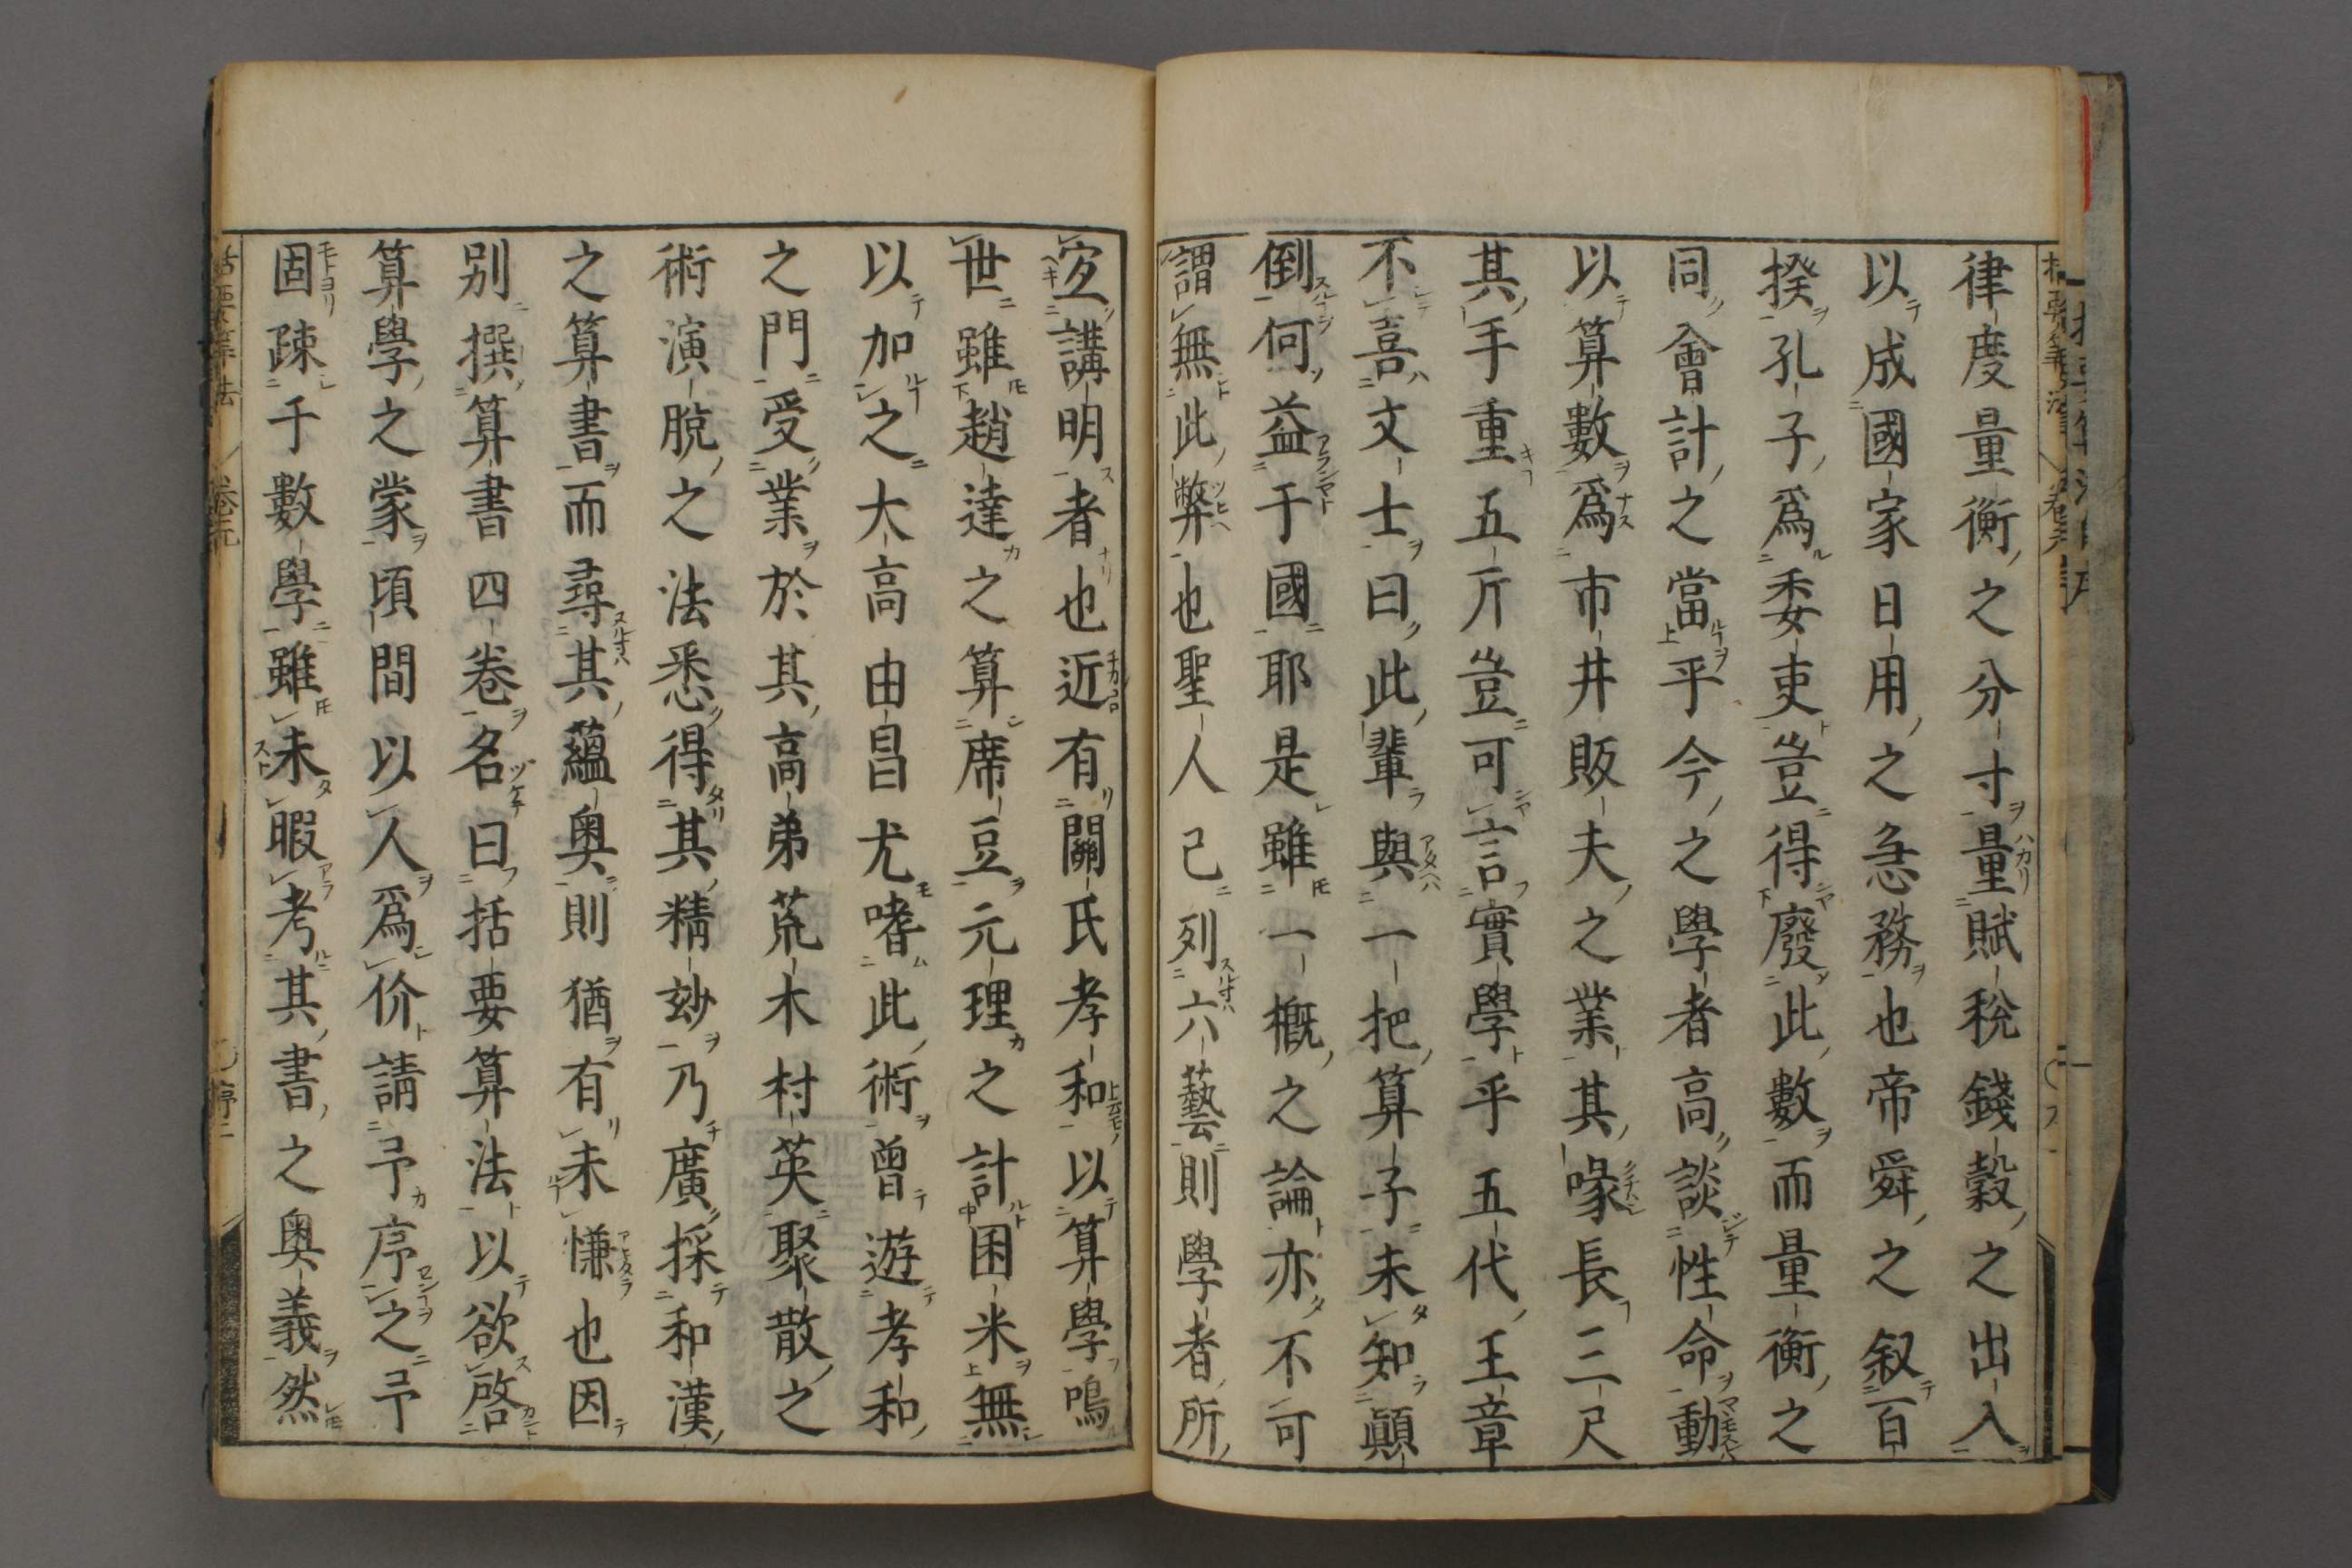 律度量衡之分寸量賦稅錢穀之出入
以成國家日用之急務也帝舜之叙百
揆孔子爲委吏豈得廢此數而量衡之
同會計之當乎今之學者高談性命動
以算數爲市井販夫之業其喙長三尺
其手重五斤豈可言實學乎五代王章
不喜文士曰此輩與一把算子未知顚
倒何益于國耶是雖一概之論亦不可
謂無此弊也聖人已列六藝則學者所
宜講明者也近有關氏孝和以算學鳴
世雖趙達之算席豆元理之計囷米無
以加之大高由昌尤嗜此術曾遊孝和
之門受業於其高弟荒木村英聚散之
術演脫之法悉得其精玅乃廣採和漢
之算書而尋其蘊奧則猶有未慊也因
別撰算書四卷名曰括要算法以欲啓
算學之蒙頃間以人爲价請予序之予
固疎于數學雖未暇考其書之奧義然
括要算法 卷元 序二